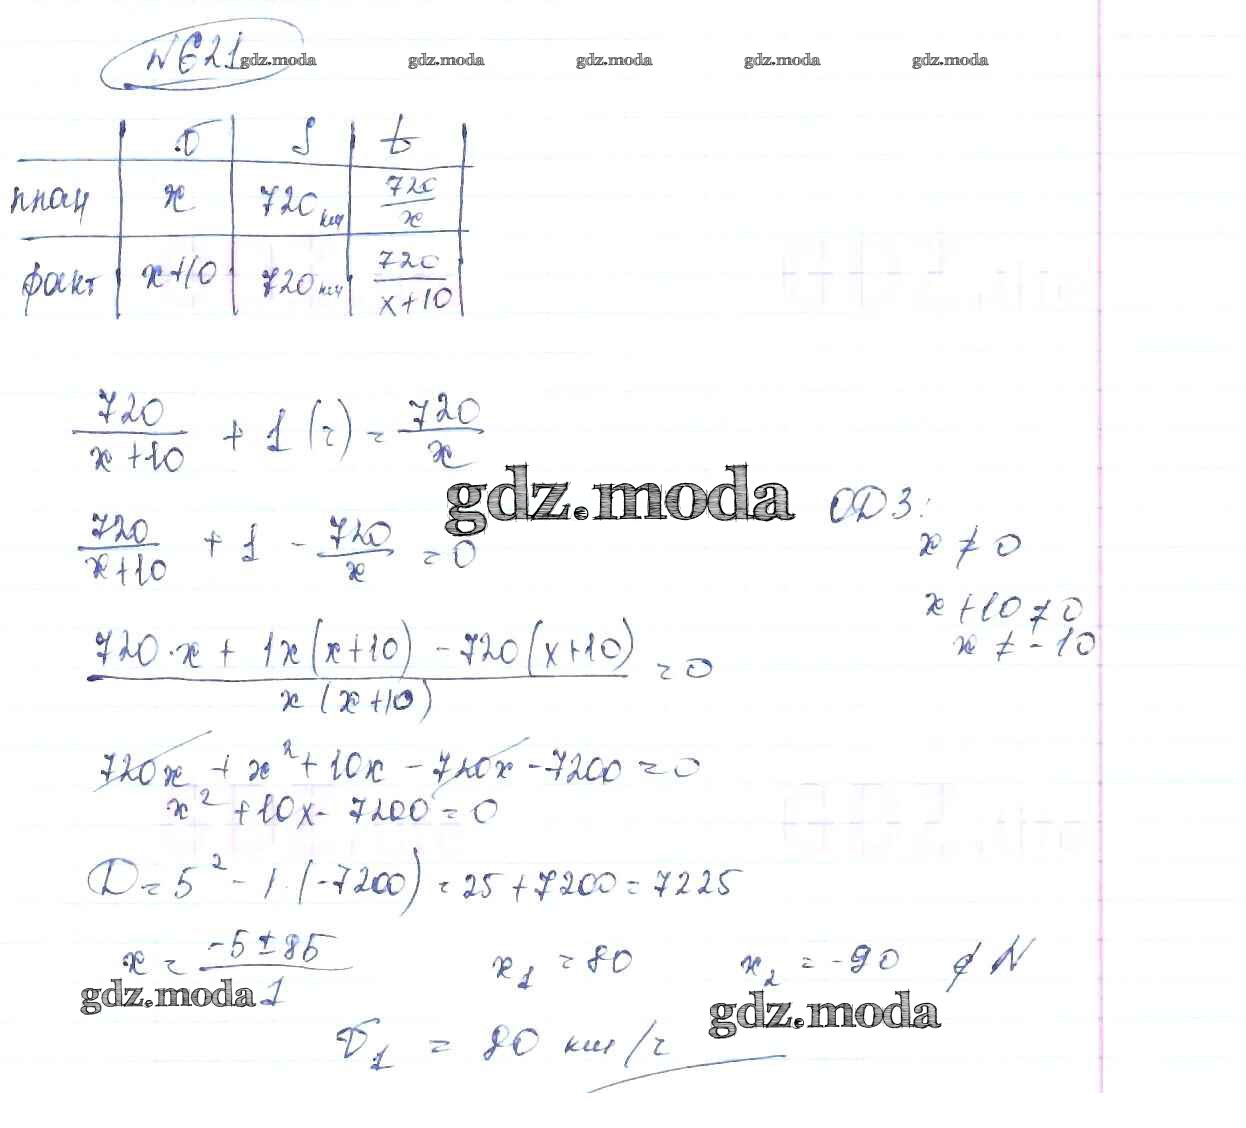 №621
gdz.moda gdz.moda gdz.moda gdz.moda gdz.moda
v S t
план x 720 км 720/x
факт x+10 720 км 720/(x+10)
720/(x+10) + 1 (ч) = 720/x
gdz.moda
720/(x+10) + 1 - 720/x = 0
ОДЗ:
x ≠ 0
x+10 ≠ 0
x ≠ -10
(720·x + 1x(x+10) - 720(x+10))/(x(x+10)) = 0
720x + x² + 10x - 720x - 7200 = 0
x² + 10x - 7200 = 0
D = 5² - 1·(-7200) = 25 + 7200 = 7225
x = (-5 ± 85)/1 x₁ = 80 x₂ = -90 ∉ N
gdz.moda gdz.moda
v₁ = 80 км/ч